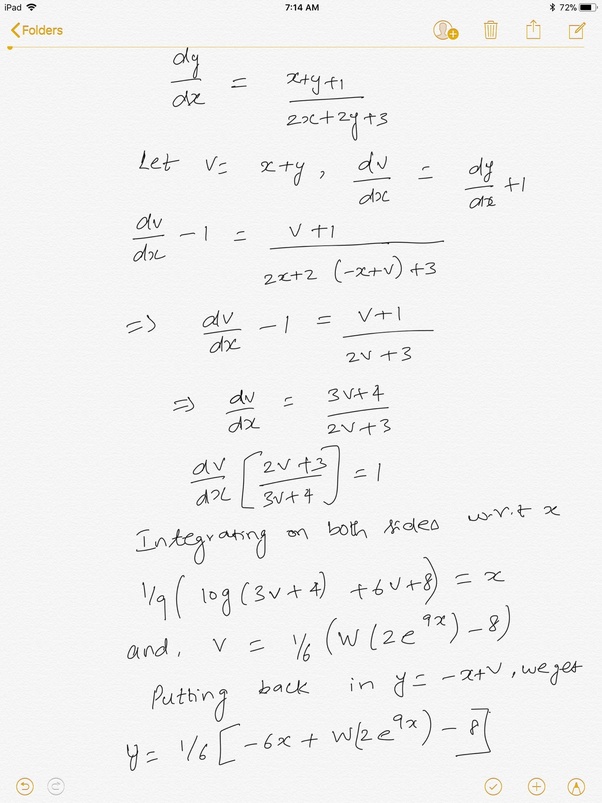 iPad 7:14 AM 72%
Folders
dy/dx = x+y+1 / 2x+2y+3
Let v= x+y, dv/dx = dy/dx +1
dv/dx -1 = v+1 / 2x+2 (-x+v)+3
=> dv/dx -1 = v+1 / 2v+3
=> dv/dx = 3v+4 / 2v+3
dv/dx [2v+3 / 3v+4] = 1
Integrating on both sides w.r.t x
1/9( log(3v+4) +6v+8) = x
and, v = 1/6 (W(2e^9x)-8)
Putting back in y= -x+v, we get
y= 1/6[-6x+ W(2e^9x) - 8]